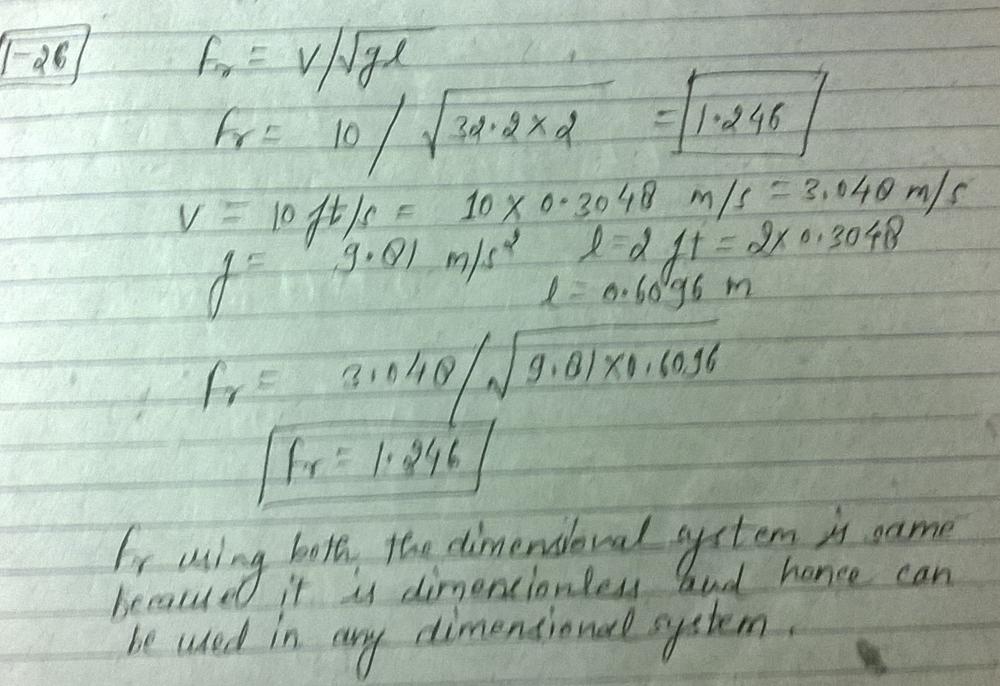 1-26
Fr = V/√gl
Fr = 10 / √32.2 × 2 = 1.246
V = 10 ft/s = 10 × 0.3048 m/s = 3.048 m/s
g = 9.81 m/s² l = 2 ft = 2 × 0.3048
l = 0.6096 m
Fr = 3.048 / √9.81 × 0.6096
Fr = 1.246
Fr using both, the dimensional system is same
because it is dimensionless and hence can
be used in any dimensional system.